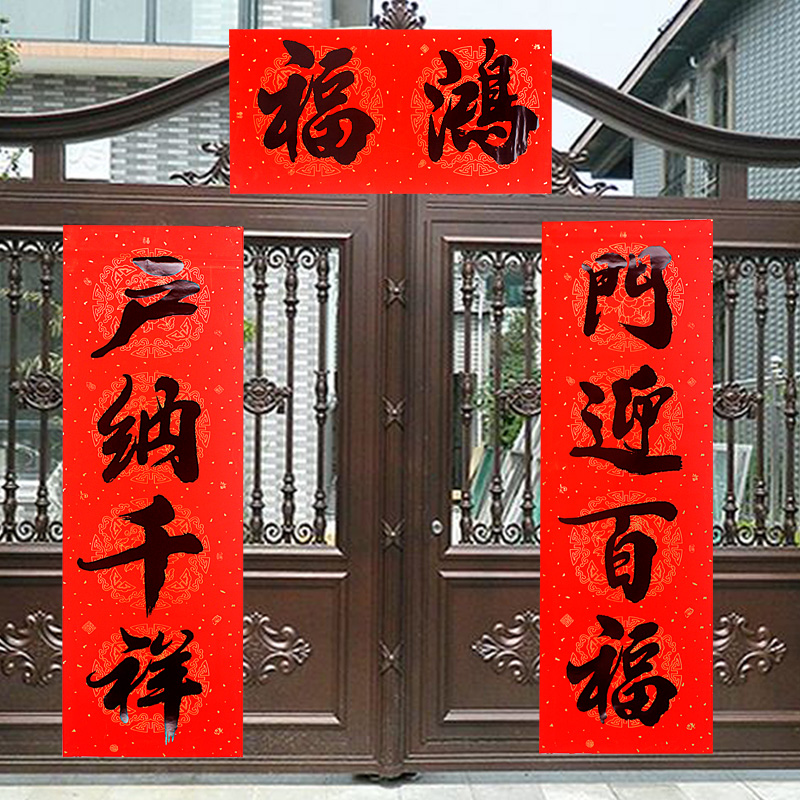 鴻福
門迎百福
户纳千祥